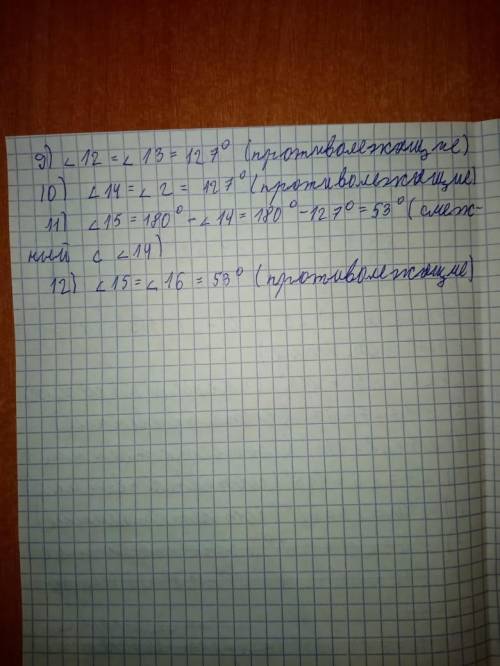 9) ∠12 = ∠13 = 127° (противолежащие)
10) ∠14 = ∠2 = 127° (противолежащие)
11) ∠15 = 180° - ∠14 = 180° - 127° = 53° (смеж-
ный с ∠14)
12) ∠15 = ∠16 = 53° (противолежащие)